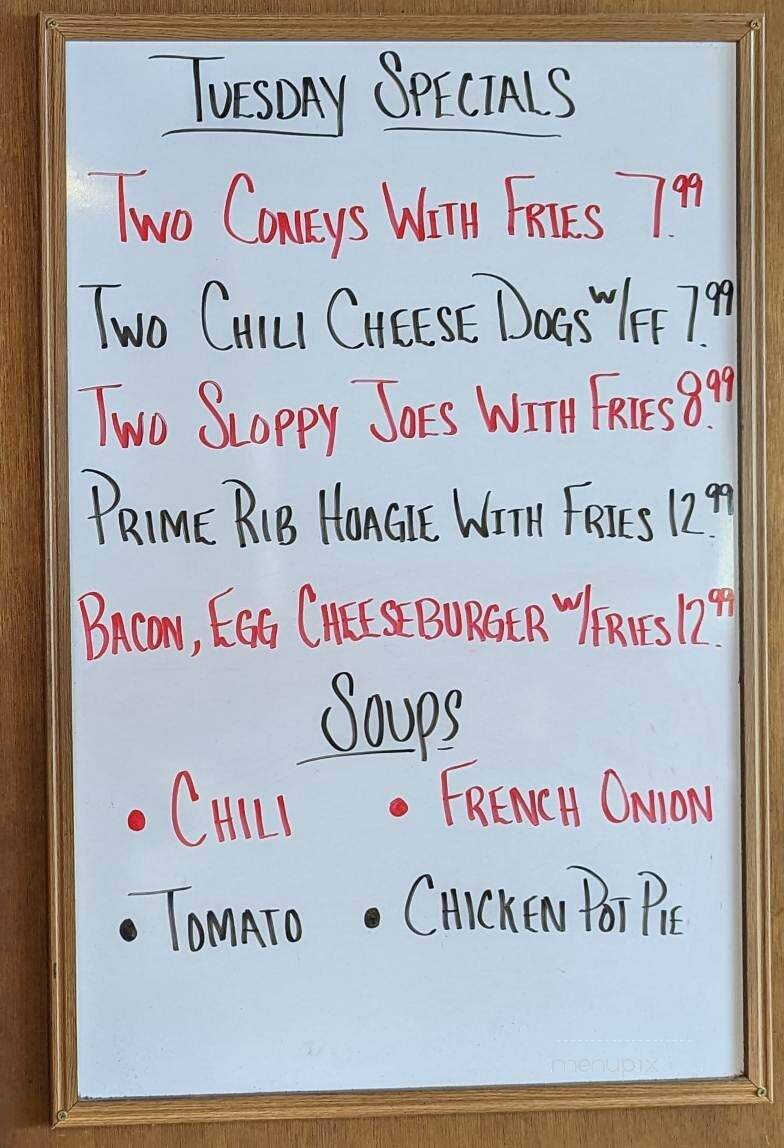 TUESDAY SPECIALS
TWO CONEYS WITH FRIES 7.99
TWO CHILI CHEESE DOGS W/FF 7.99
TWO SLOPPY JOES WITH FRIES 8.99
PRIME RIB HOAGIE WITH FRIES 12.99
BACON, EGG CHEESEBURGER W/FRIES 12.99
SOUPS
• CHILI • FRENCH ONION
• TOMATO • CHICKEN POT PIE
menupix